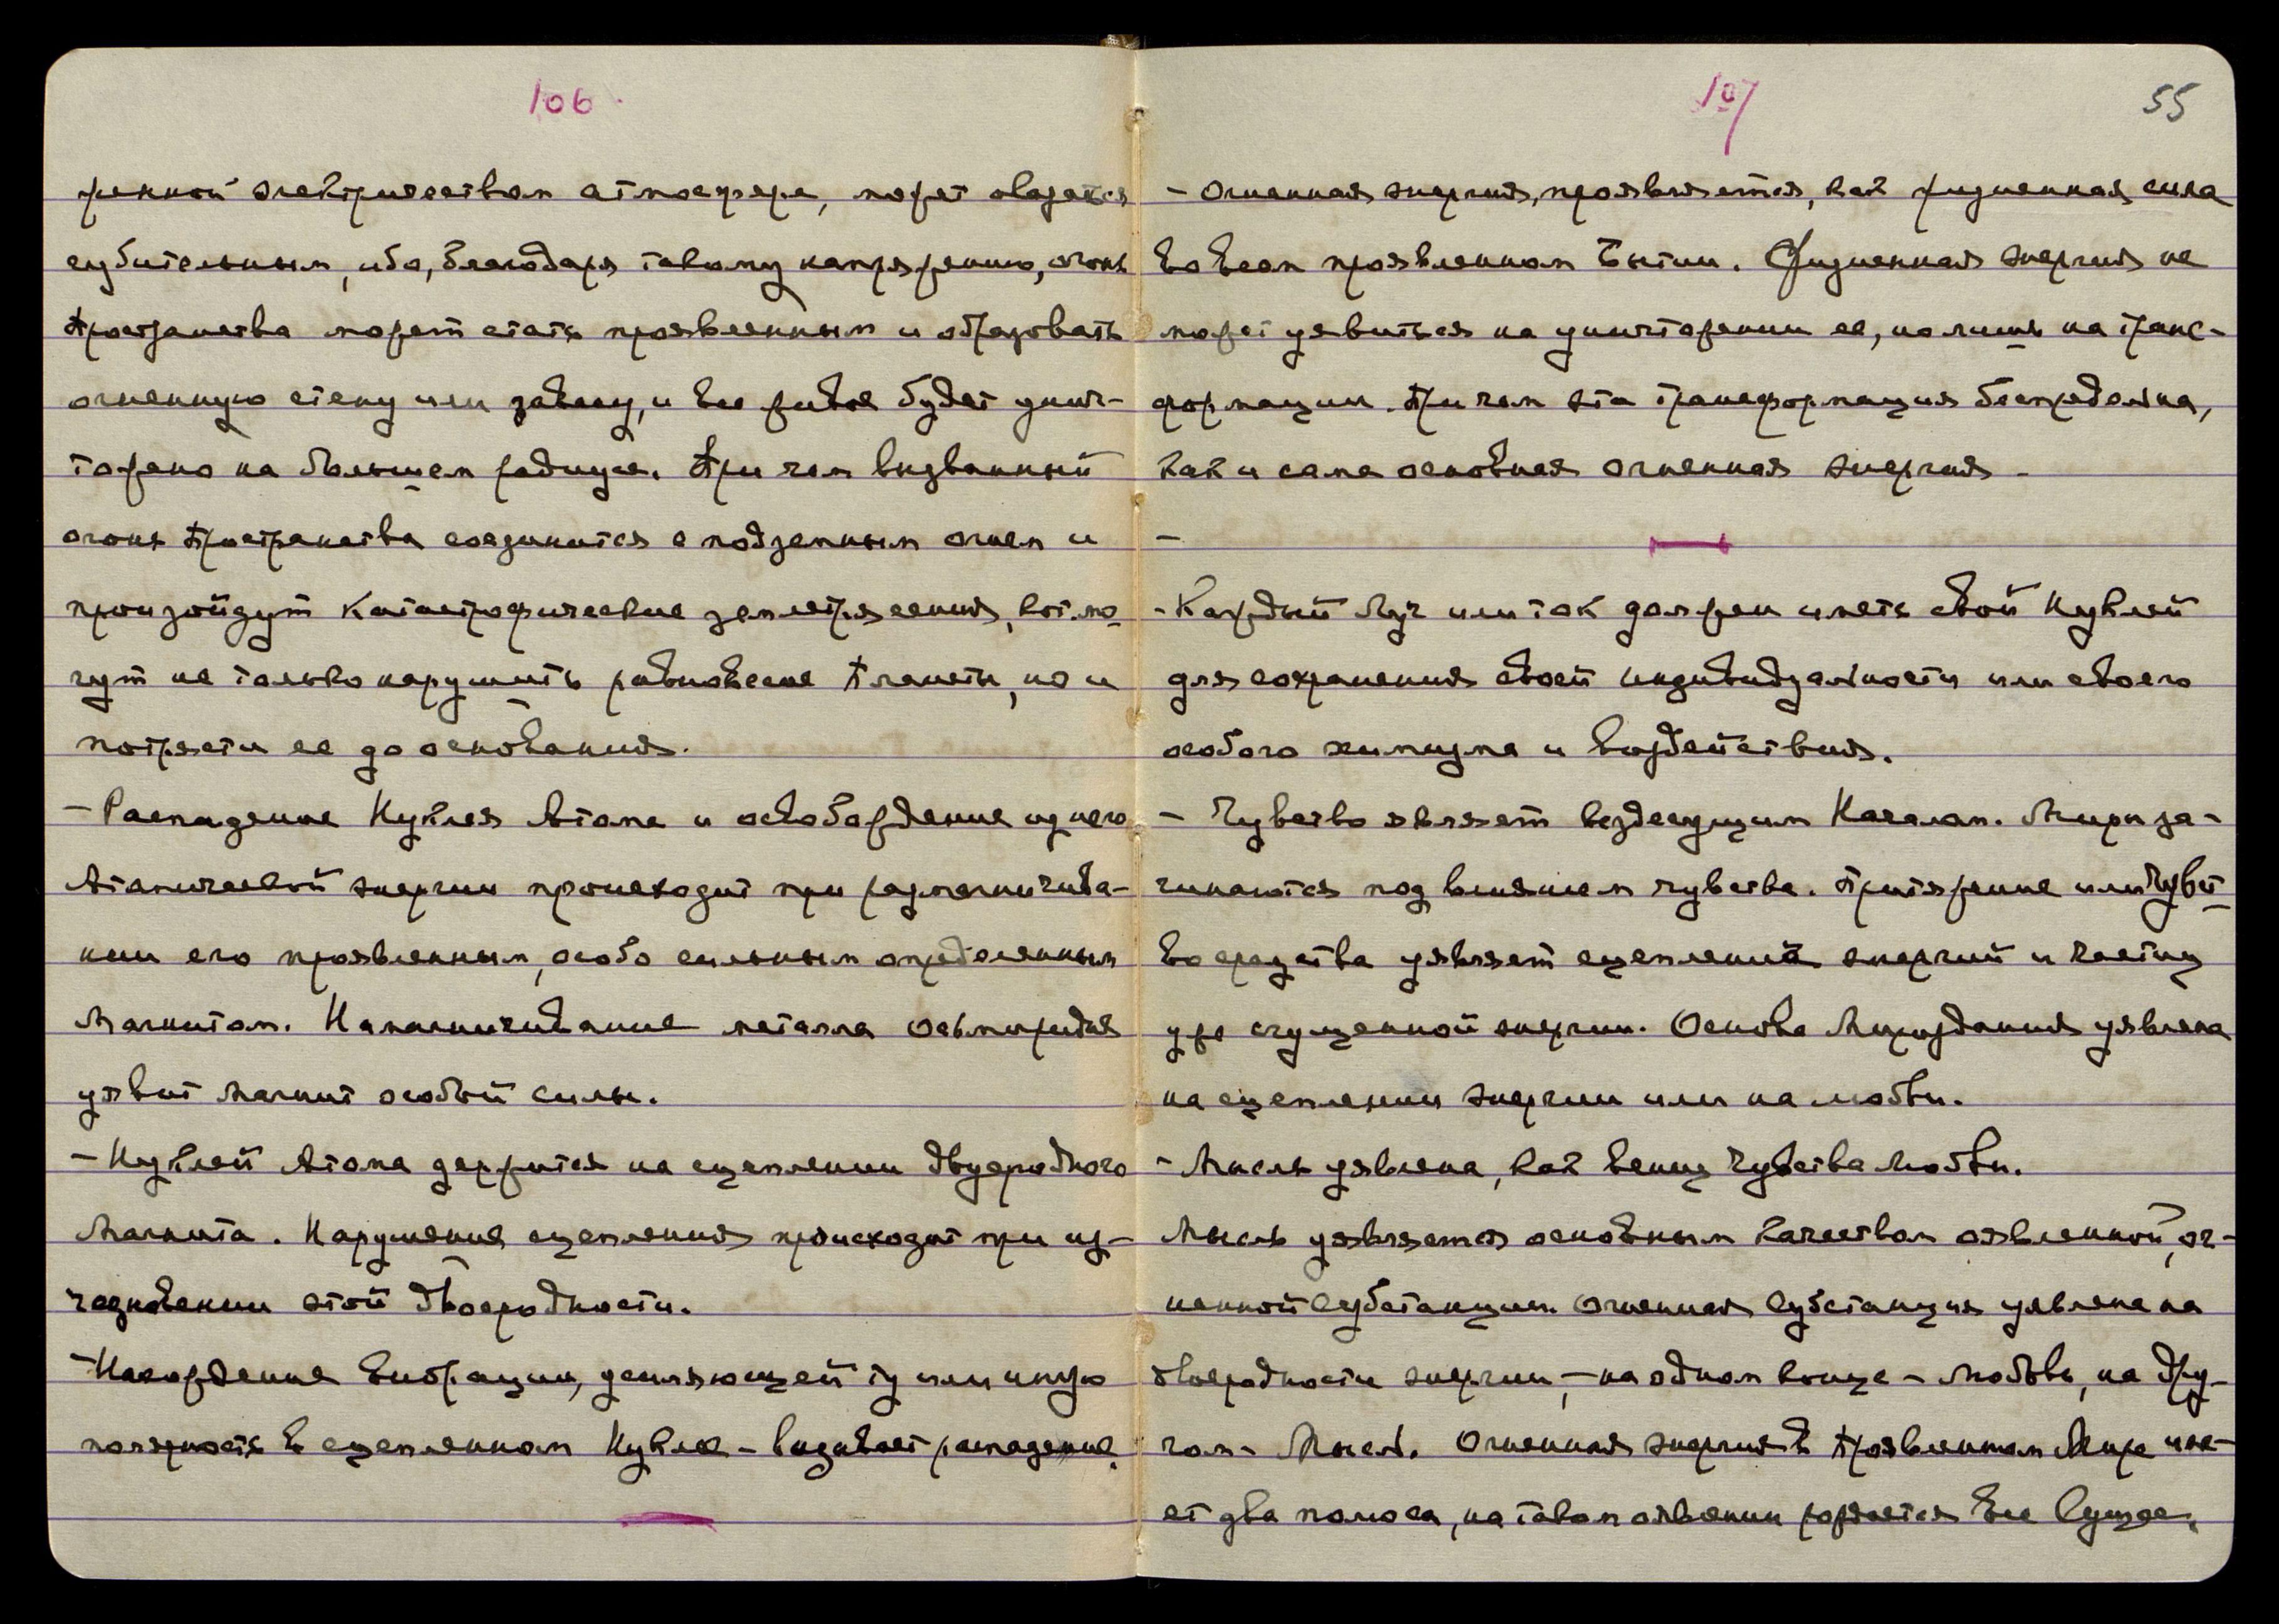 106
женной электричеством атмосфере, может оказаться
губительным, ибо, благодаря такому напряжению, огонь
Пространства может стать проявленным и образовать
огненную стену или завесу, и все живое будет унич-
тожено на большем радиусе. При чем вызванный
огонь Пространства соединится с подземным огнем и
произойдут катастрофические землетрясения, кот. мо-
гут не только нарушить равновесие Планеты, но и
потрясти ее до основания.
- Распадение Нуклея Атома и освобождение из него
Атомической энергии происходит при размагничива-
нии его проявленным, особо сильным определенным
Магнитом. Намагничивание металла Осьмиридия
уявит Магнит особой силы.
- Нуклей Атома держится на сцеплении двуродного
Магнита. Нарушение сцепления происходит при ис-
чезновении этой двуродности.
- Нахождение вибрации, усиляющей ту или иную
полярность в сцепленном Нуклее - вызывает распадение.
107
55
- Огненная энергия, проявляется, как жизненная сила
во всем проявленном Бытии. Жизненная энергия не
может уявиться на уничтожении ее, но лишь на транс-
формации. При чем эта трансформация беспредельна,
как и сама основная огненная энергия -
-
- Каждый Луч или ток должен иметь свой Нуклей
для сохранения своей индивидуальности или своего
особого химизма и воздействия.
- Чувство являет вездесущим Началом. Миры за-
чинаются под влиянием чувства. Притяжение или Чувст-
во средства уявляет сцепления энергий и частиц
уже сгущенной энергии. Основа Мироздания уявлена
на сцеплении энергии или на любви.
- Мысль уявлена, как венец Чувства Любви.
Мысль уявляется основным качеством оявленной, ог-
ненной Субстанции. Огненная Субстанция уявлена на
двуродности энергии, - на одном конце - Любовь, на дру-
гом - Мысль. Огненная энергия в Проявленном Мире име-
ет два полюса, на таком оявлении рождается все Сущее.